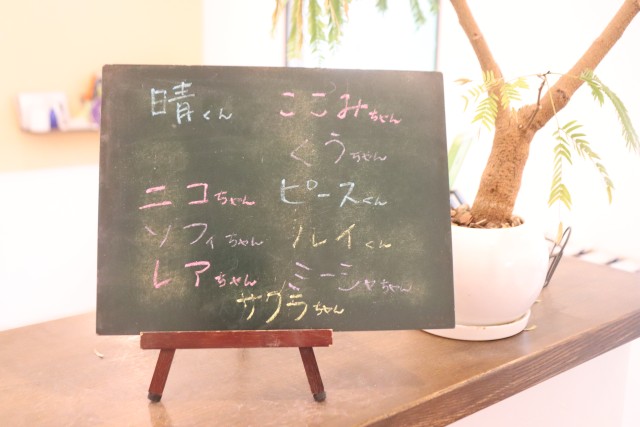 晴くん ここみちゃん
くうちゃん
ニコちゃん ピースくん
ソフィちゃん ソレイくん
レアちゃん ミーシャちゃん
サクラちゃん